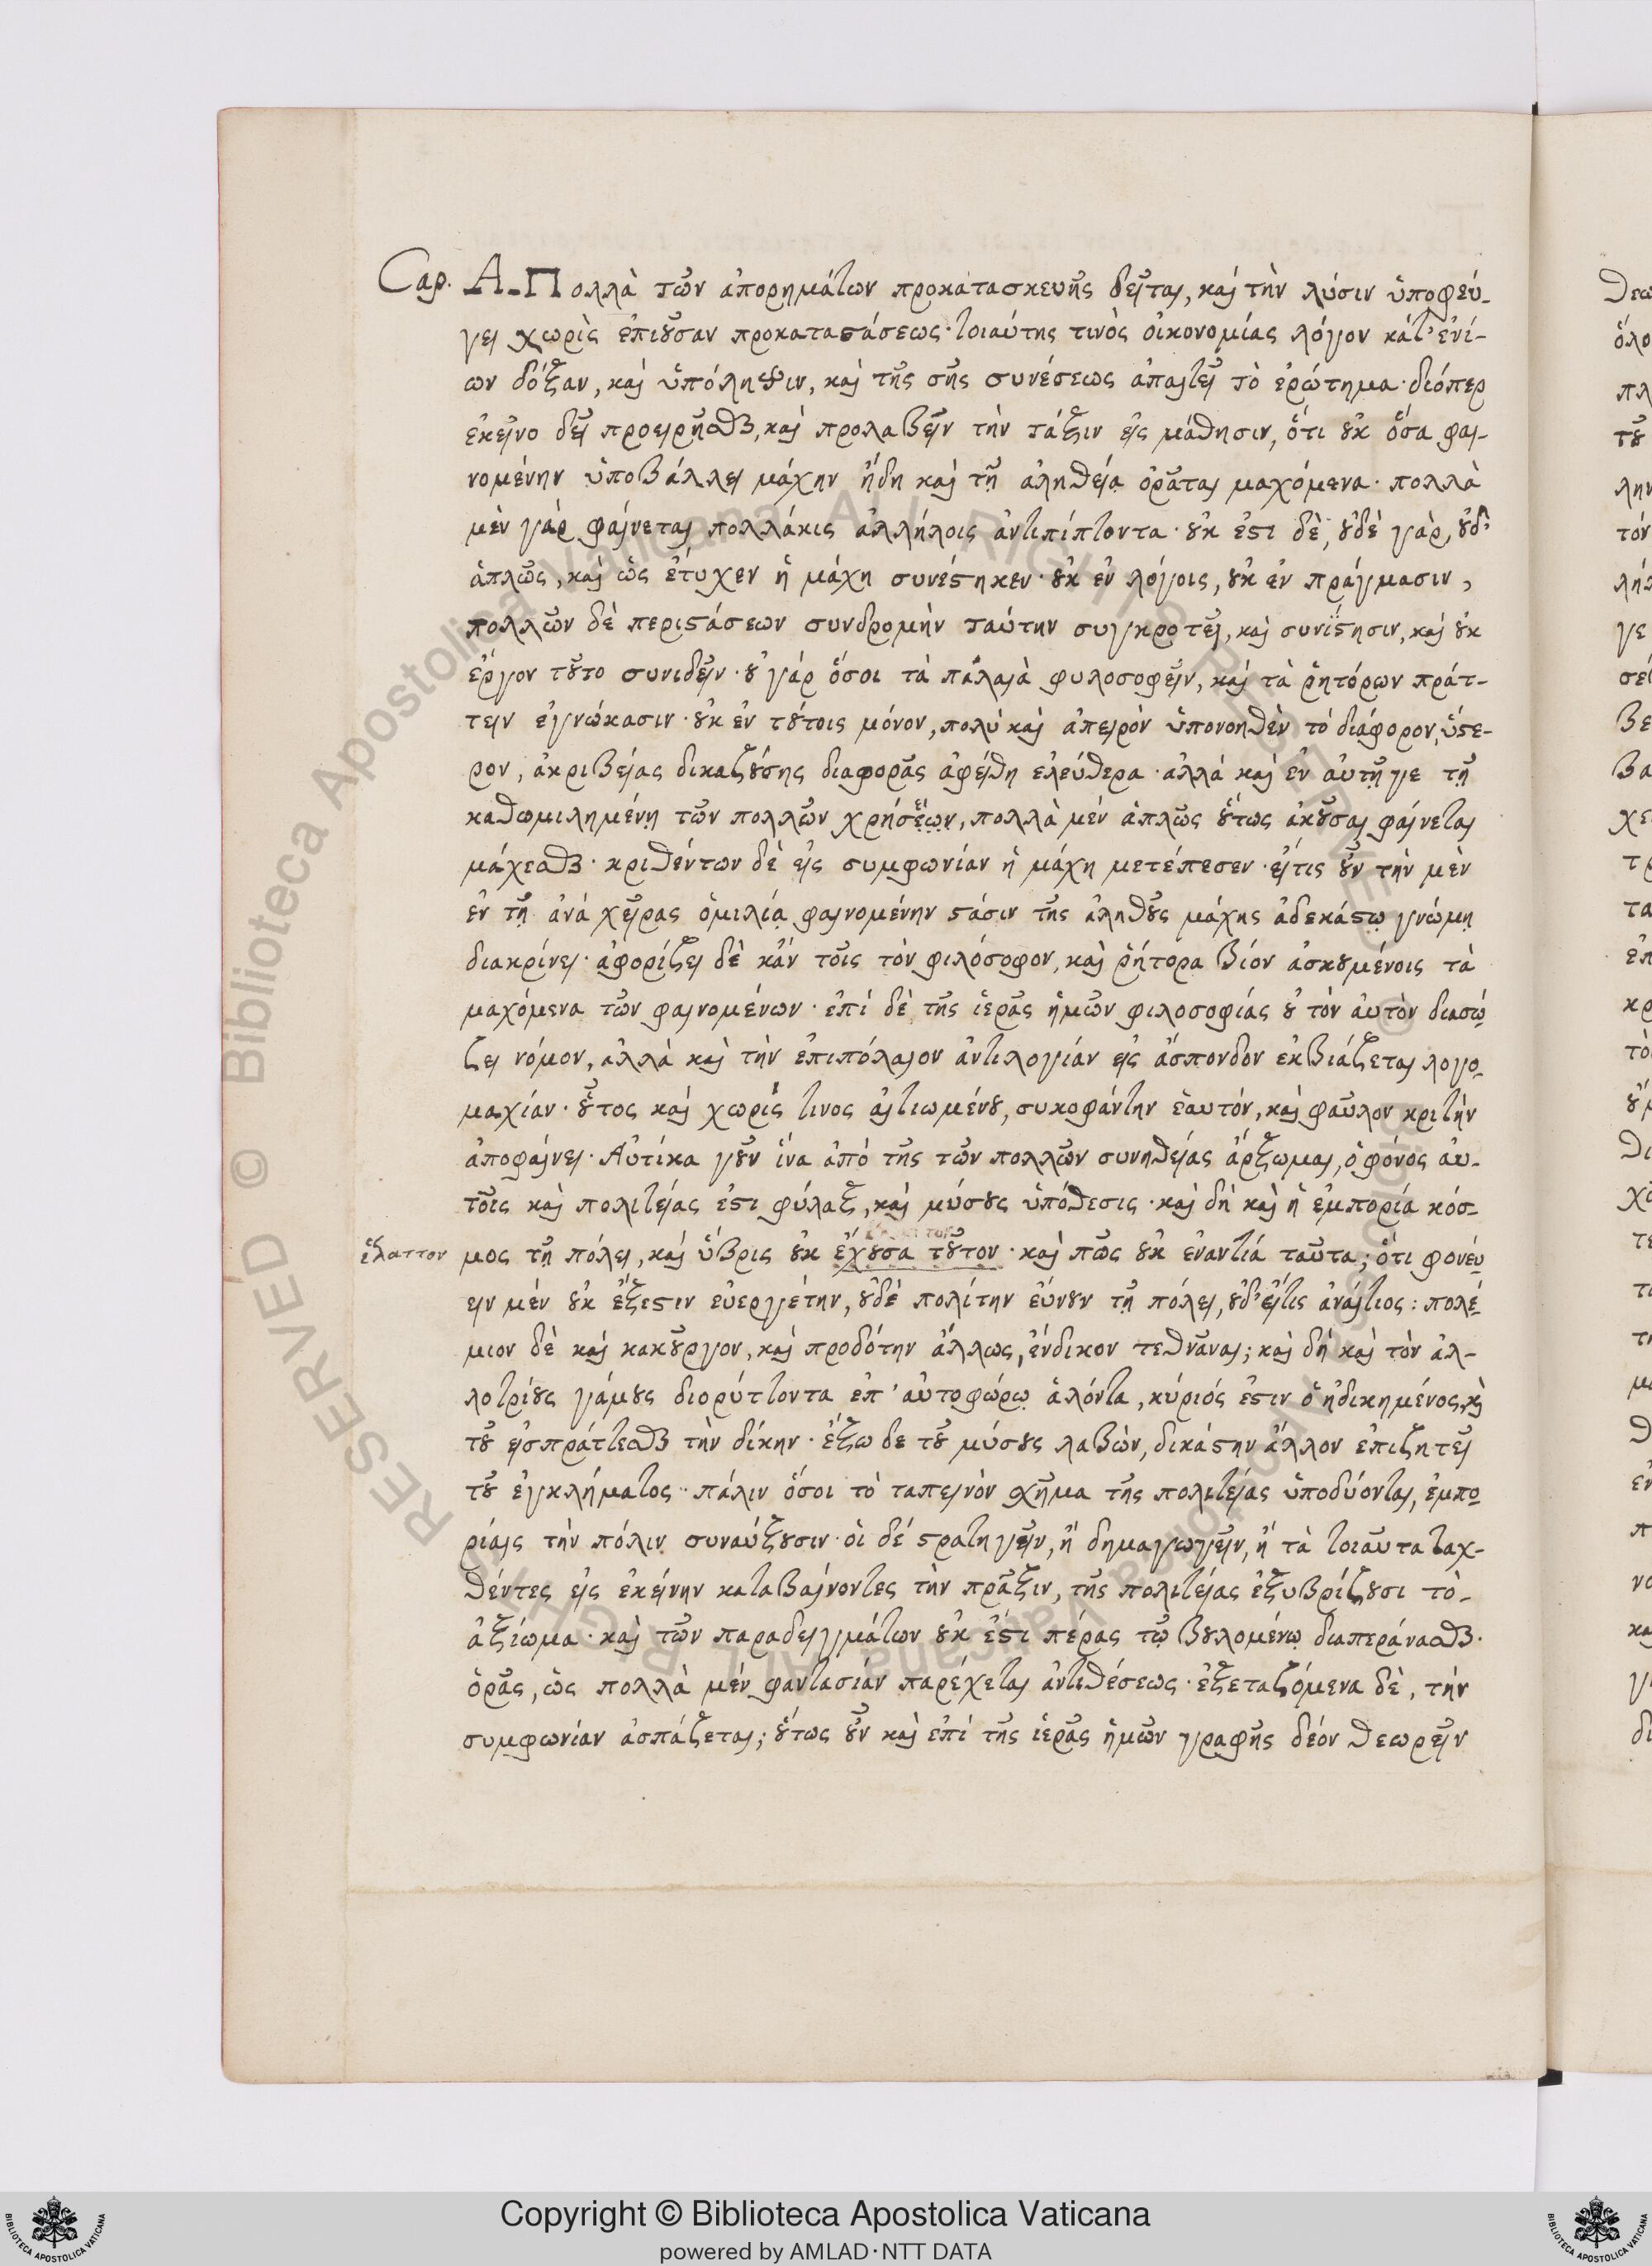 Cap. Α. Πολλὰ τῶν ἀπορημάτων προκατασκευῆς δεῖται, καὶ τὴν λύσιν ὑποφεύ-
γει χωρὶς ἐπιοῦσαν προκαταστάσεως· τοιαύτης τινὸς οἰκονομίας λόγον κάτ' ἐνί-
ων δόξαν, καὶ ὑπόληψιν, καὶ τῆς σῆς συνέσεως ἀπαιτεῖ τὸ ἐρώτημα· διόπερ
ἐκεῖνο δεῖ προειρῆσθαι, καὶ προλαβεῖν τὴν τάξιν εἰς μάθησιν, ὅτι οὐκ ὅσα φαι-
νομένην ὑποβάλλει μάχην ἤδη καὶ τῇ ἀληθείᾳ ὁρᾶται μαχόμενα· πολλὰ
μὲν γάρ φαίνεται πολλάκις ἀλλήλοις ἀντιπίπτοντα· οὐκ ἐστι δὲ, οὐδὲ γὰρ, οὐδ'
ἁπλῶς, καὶ ὡς ἔτυχεν ἡ μάχη συνέστηκεν· οὐκ ἐν λόγοις, οὐκ ἐν πράγμασιν,
πολλῶν δὲ περιστάσεων συνδρομὴν ταύτην συγκροτεῖ, καὶ συνίστησιν, καὶ οὐκ
ἔργον τοῦτο συνιδεῖν· οὐ γάρ ὅσοι τὰ παλαιὰ φυλοσοφεῖν, καὶ τὰ ῥητόρων πράτ-
τειν ἐγνώκασιν· οὐκ ἐν τούτοις μόνον, πολὺ καὶ ἀπειρόν ὑπονοηθὲν τὸ διάφορον, ὕστε-
ρον, ἀκριβείας δικαζούσης διαφορᾶς ἀφείθη ἐλεύθερα· ἀλλά καὶ ἐν αὐτῇ γε τῇ
καθωμιλημένῃ τῶν πολλῶν χρήσεων, πολλὰ μέν ἁπλῶς οὕτως ἀκοῦσαι φαίνεται
μάχεσθαι· κριθέντων δὲ εἰς συμφωνίαν ἡ μάχη μετέπεσεν· εἴτις οὖν τὴν μὲν
ἐν τῇ ἀνά χεῖρας ὁμιλίᾳ φαινομένην στάσιν τῆς ἀληθοῦς μάχης ἀδεκάστῳ γνώμῃ
διακρίνει· ἀφορίζει δὲ κἄν τοῖς τὸν φιλόσοφον, καὶ ῥήτορα βίον ἀσκουμένοις τὰ
μαχόμενα τῶν φαινομένων· ἐπὶ δὲ τῆς ἱερᾶς ἡμῶν φιλοσοφίας οὐ τὸν αὐτὸν διασώ
ζει νόμον, ἀλλὰ καὶ τὴν ἐπιπόλαιον ἀντιλογίάν εἰς ἄσπονδον ἐκβιάζεται λογο-
μαχίαν· οὗτος καὶ χωρίς τινος αἰτιωμένου, συκοφάντην ἑαυτόν, καὶ φαῦλον κριτὴν
ἀποφαίνει· Αὐτίκα γοῦν ἵνα ἀπό τῆς τῶν πολλῶν συνηθείας ἄρξωμαι, ὁ φόνος αὐ-
τοῖς καὶ πολιτείας ἐστι φύλαξ, καὶ μύσους ὑπόθεσις· καὶ δὴ καὶ ἡ ἐμπορία κόσ-
ἔλαττον μος τῇ πόλει, καὶ ὕβρις οὐκ ἔχουσα τοῦτον· καὶ πῶς οὐκ ἐναντιά ταῦτα; ὅτι φονεύ
ειν μέν οὐκ ἔξεστιν εὐεργέτην, οὐδὲ πολίτην εὔνουν τῇ πόλει, οὐδ' εἴτις ἀναίτιος: πολέ-
μιον δὲ καὶ κακοῦργον, καὶ προδότην ἄλλως, ἔνδικον τεθνᾶναι; καὶ δὴ καὶ τὸν ἀλ-
λοτρίους γάμους διορύττοντα ἐπ' αὐτοφώρῳ ἁλόντα, κύριός ἐστιν ὁ ἠδικημένος, καὶ
τοῦ εἰσπράττεσθαι τὴν δίκην· ἔξω δε τοῦ μύσους λαβὼν, δικάστην ἄλλον ἐπιζητεῖ
τοῦ ἐγκλήματος· πάλιν ὅσοι τὸ ταπεινὸν σχῆμα τῆς πολιτείας ὑποδύονται, ἐμπο
ρίαις τὴν πόλιν συναύξουσιν· οἱ δέ στρατηγεῖν, ἢ δημαγωγεῖν, ἢ τὰ τοιαῦτα ταχ-
θέντες εἰς ἐκείνην καταβαίνοντες τὴν πρᾶξιν, τῆς πολιτείας ἐξυβρίζουσι τὸ-
ἀξίωμα· καὶ τῶν παραδειγμάτων οὐκ ἔστι πέρας τῷ βουλομένῳ διαπεράνασθαι·
ὁρᾶς, ὡς πολλὰ μέν φαντασίαν παρέχεται ἀντιθέσεως· ἐξεταζόμενα δὲ, τὴν
συμφωνίαν ἀσπάζεται; οὕτως οὖν καὶ ἐπὶ τῆς ἱερᾶς ἡμῶν γραφῆς δέον θεωρεῖν
Copyright © Biblioteca Apostolica Vaticana
powered by AMLAD·NTT DATA